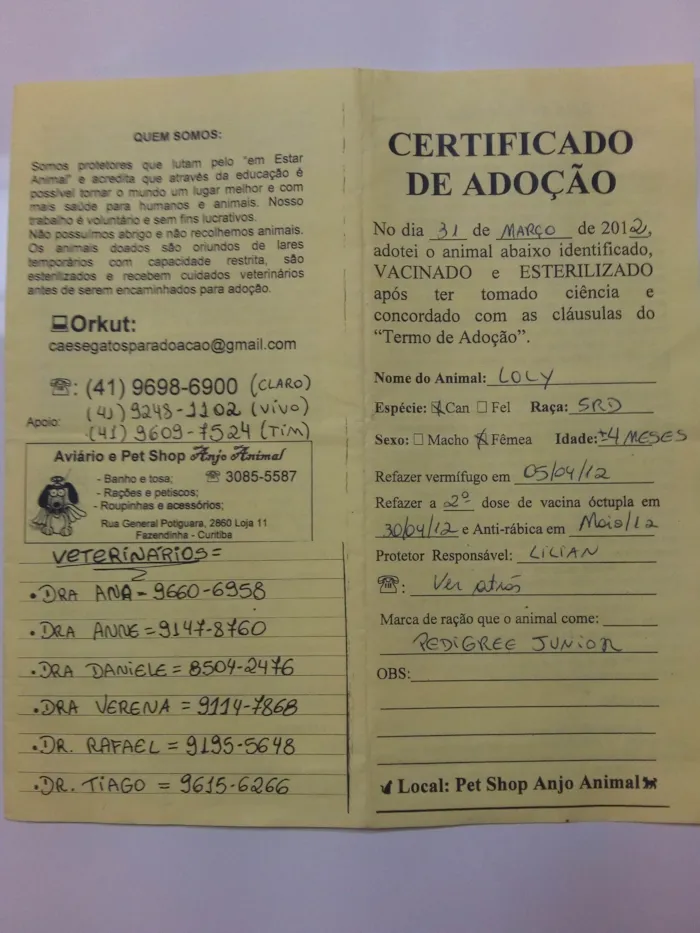 QUEM SOMOS:
Somos protetores que lutam pelo "em Estar
Animal" e acredita que através da educação é
possível tornar o mundo um lugar melhor e com
mais saúde para humanos e animais. Nosso
trabalho é voluntário e sem fins lucrativos.
Não possuímos abrigo e não recolhemos animais.
Os animais doados são oriundos de lares
temporários com capacidade restrita, são
esterilizados e recebem cuidados veterinários
antes de serem encaminhados para adoção.
Orkut:
caesegatosparadoacao@gmail.com
(41) 9698-6900 (CLARO)
(41) 9248-1102 (VIVO)
Apoio: (41) 9609-7524 (TIM)
Aviário e Pet Shop Anjo Animal
- Banho e tosa; 3085-5587
- Rações e petiscos;
- Roupinhas e acessórios;
Rua General Potiguara, 2860 Loja 11
Fazendinha - Curitiba
VETERINÁRIOS=
• DRA ANA - 9660-6958
• DRA ANNE = 9147-8760
• DRA DANIELE = 8504-2476
• DRA VERENA = 9114-7868
• DR. RAFAEL = 9195-5648
• DR. TIAGO = 9615-6266
CERTIFICADO
DE ADOÇÃO
No dia 31 de MARÇO de 2012,
adotei o animal abaixo identificado,
VACINADO e ESTERILIZADO
após ter tomado ciência e
concordado com as cláusulas do
"Termo de Adoção".
Nome do Animal: LOLY
Espécie: ☒ Can ☐ Fel Raça: SRD
Sexo: ☐ Macho ☒ Fêmea Idade: ±4 MESES
Refazer vermífugo em 05/04/12
Refazer a 2º dose de vacina óctupla em
30/04/12 e Anti-rábica em Maio/12
Protetor Responsável: LILIAN
: Ver atrás
Marca de ração que o animal come:
PEDIGREE JUNIOR
OBS:
Local: Pet Shop Anjo Animal